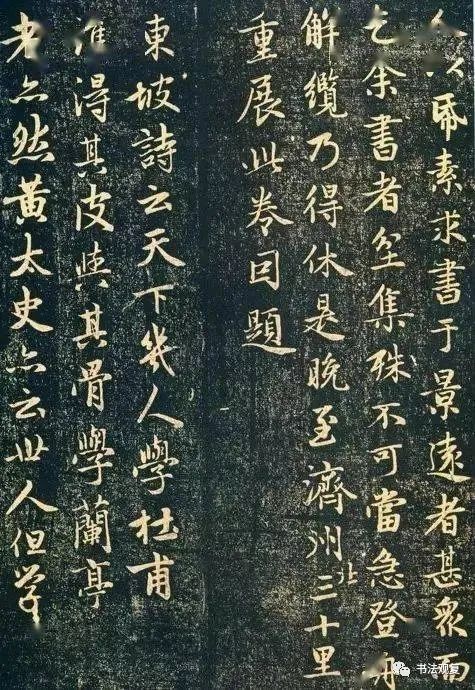 人以纸素求书于景远者甚众而
乞余書者坌集殊不可當急登舟
解纜乃得休是晚至濟州北三十里
重展此卷囙題
東坡詩云天下幾人學杜甫
誰得其皮與其骨學蘭亭
者亦然黃太史亦云世人但学
书法观复